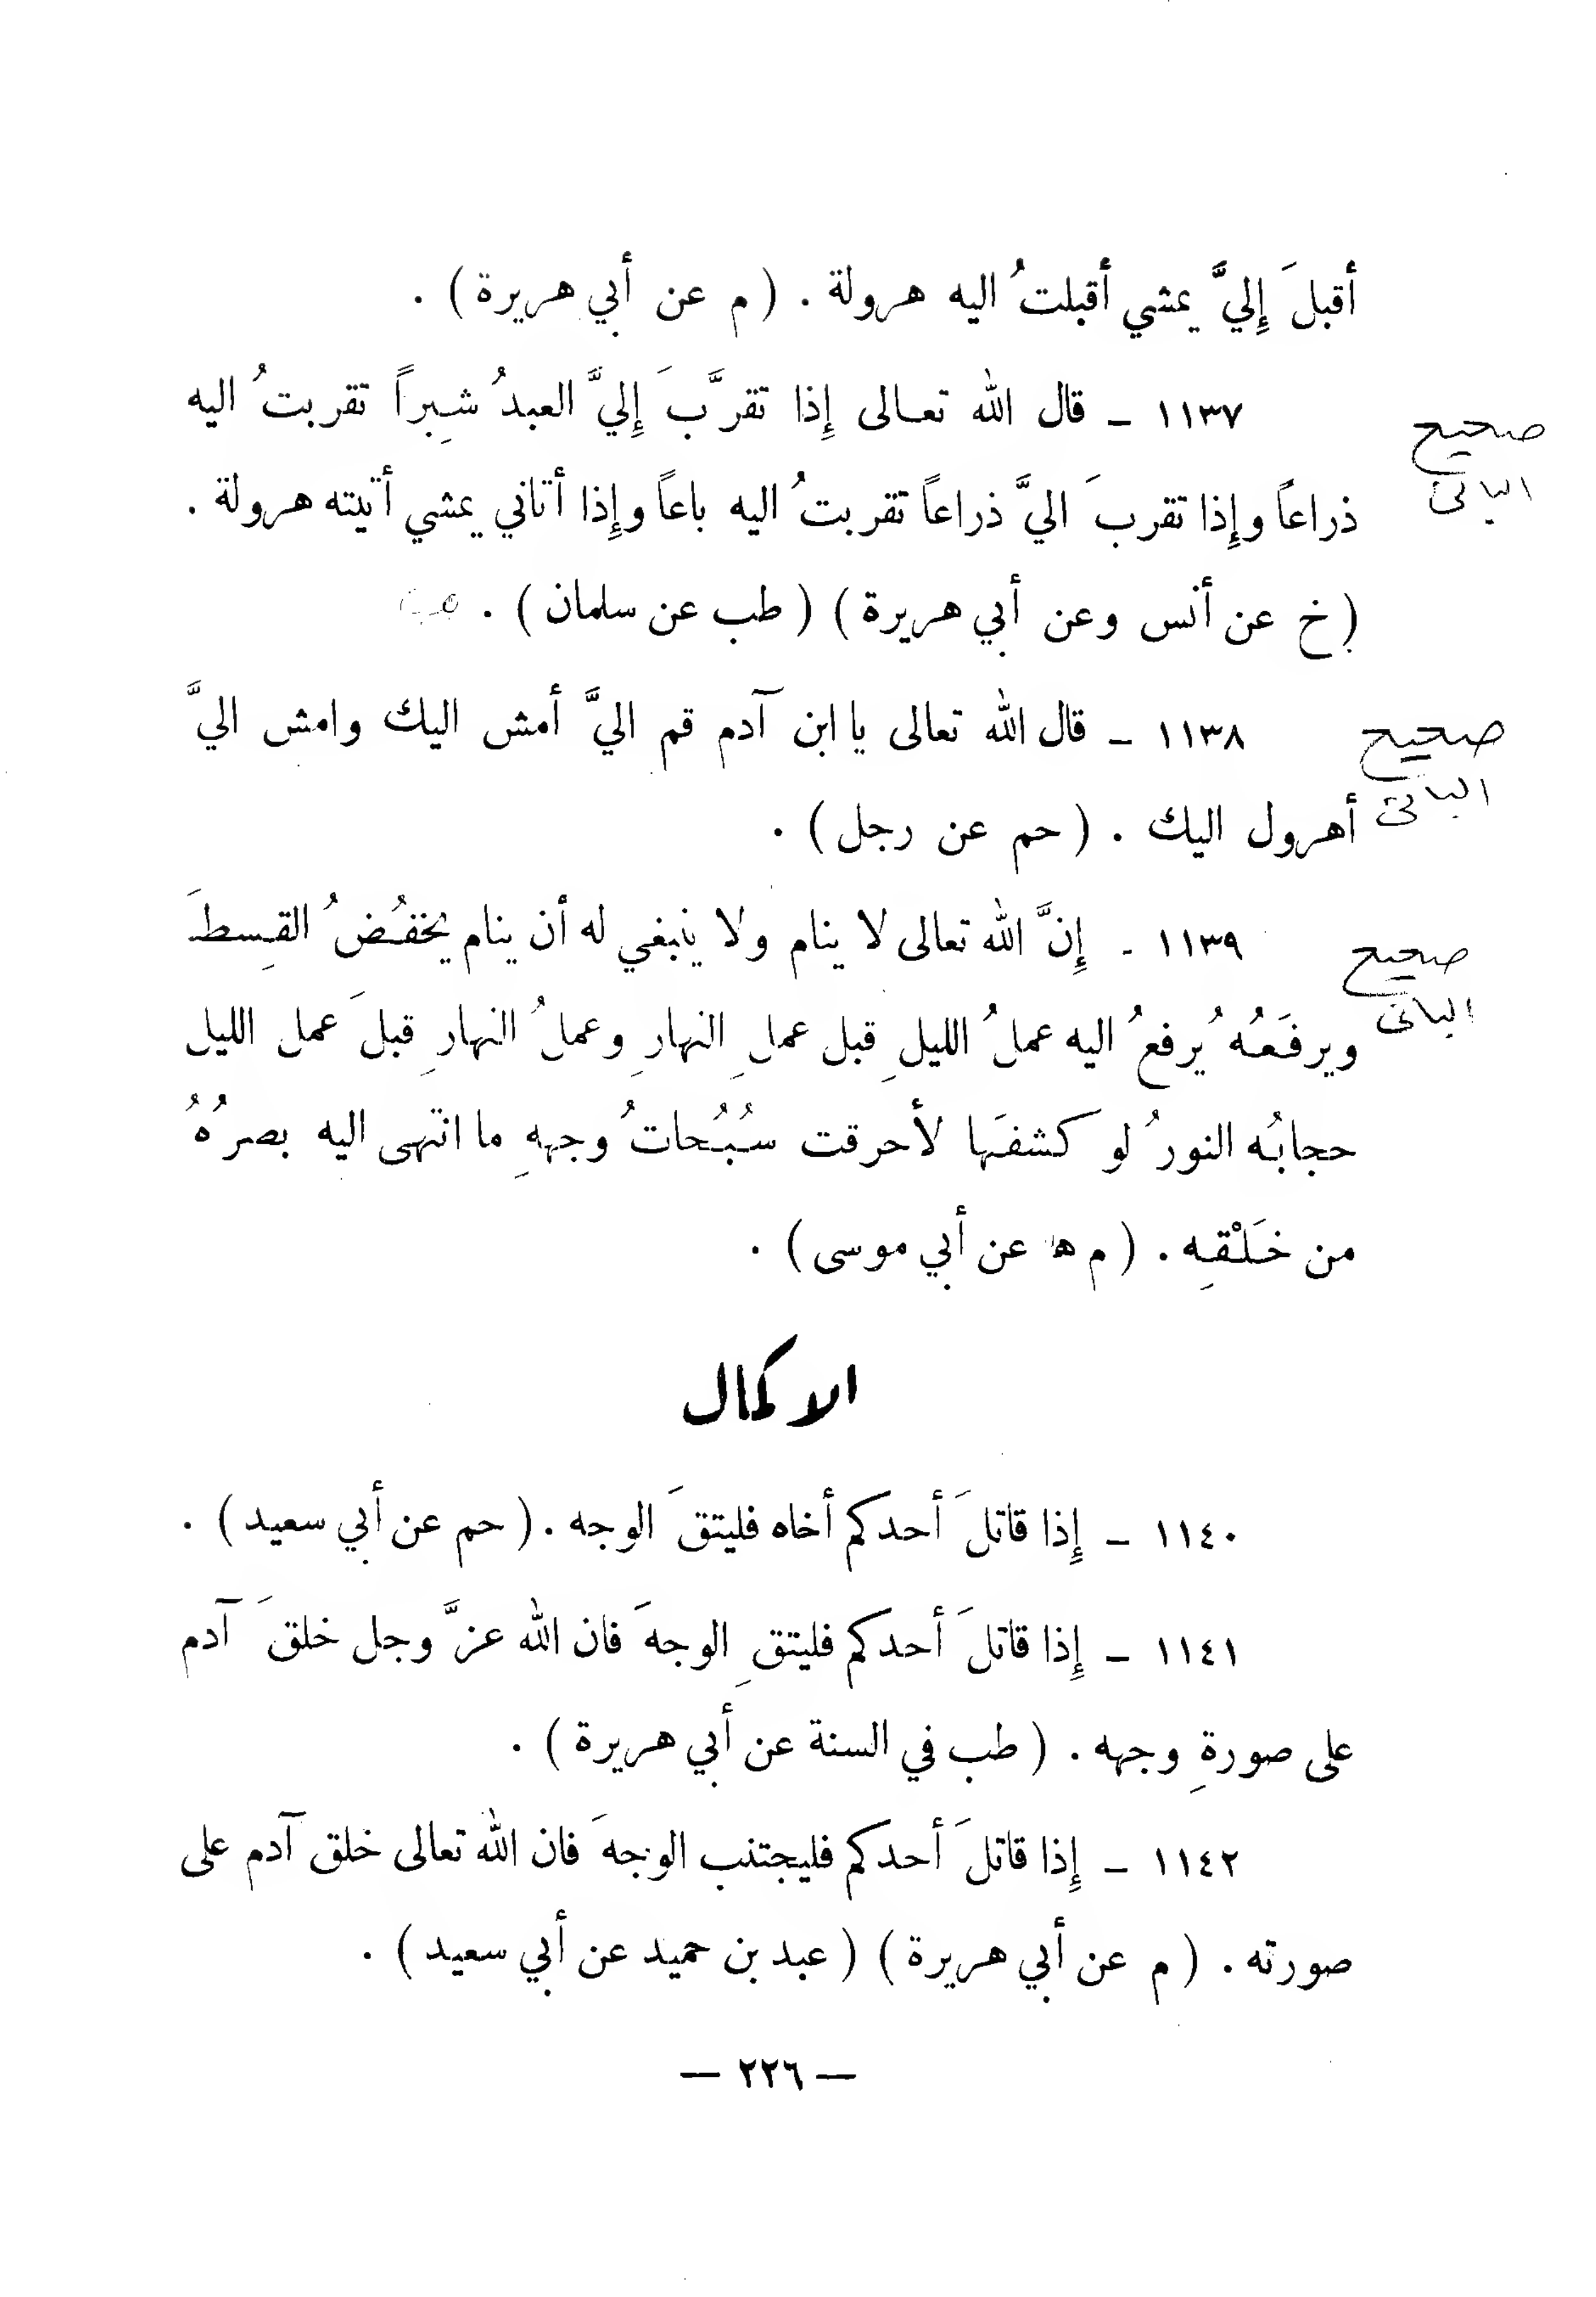 أقبلَ إِليَّ يمشي أقبلتُ اليه هرولة . ( م عن أبي هريرة ) .
١١٣٧ ـ قال الله تعالى إِذا تقرَّبَ إِليَّ العبدُ شِبراً تقربتُ اليه
صحيح
ذراعاً وإِذا تقربَ اليَّ ذراعاً تقربتُ اليه باعاً وإِذا أتاني يمشي أتيته هرولة .
البانى
( خ عن أنس وعن أبي هريرة ) ( طب عن سلمان ) .
١١٣٨ ـ قال الله تعالى يا ابن آدم قم اليَّ أمش اليك وامش اليَّ
صحيح
البانى
أهرول اليك . ( حم عن رجل ) .
١١٣٩ ـ إِنَّ الله تعالى لا ينام ولا ينبغي له أن ينام يخفُضُ القِسطَ
صحيح
البانى
ويرفَعُه يُرفعُ اليه عملُ الليلِ قبل عملِ النهارِ وعملُ النهارِ قبلَ عمل الليل
حجابُه النورُ لو كشفَها لأحرقت سُبُحاتُ وجههِ ما انتهى اليه بصرُهُ
من خَلْقِه . ( م ه عن أبي موسى ) .
الاكمال
١١٤٠ ـ إِذا قاتلَ أحدكم أخاه فليتقَ الوجه . ( حم عن أبي سعيد ) .
١١٤١ ـ إِذا قاتلَ أحدكم فليتقِ الوجهَ فان الله عزَّ وجل خلقَ آدم
على صورةِ وجهه . ( طب في السنة عن أبي هريرة ) .
١١٤٢ ـ إِذا قاتلَ أحدكم فليجتنب الوجهَ فان الله تعالى خلق آدم على
صورته . ( م عن أبي هريرة ) ( عبد بن حميد عن أبي سعيد ) .
— ٢٢٦ —